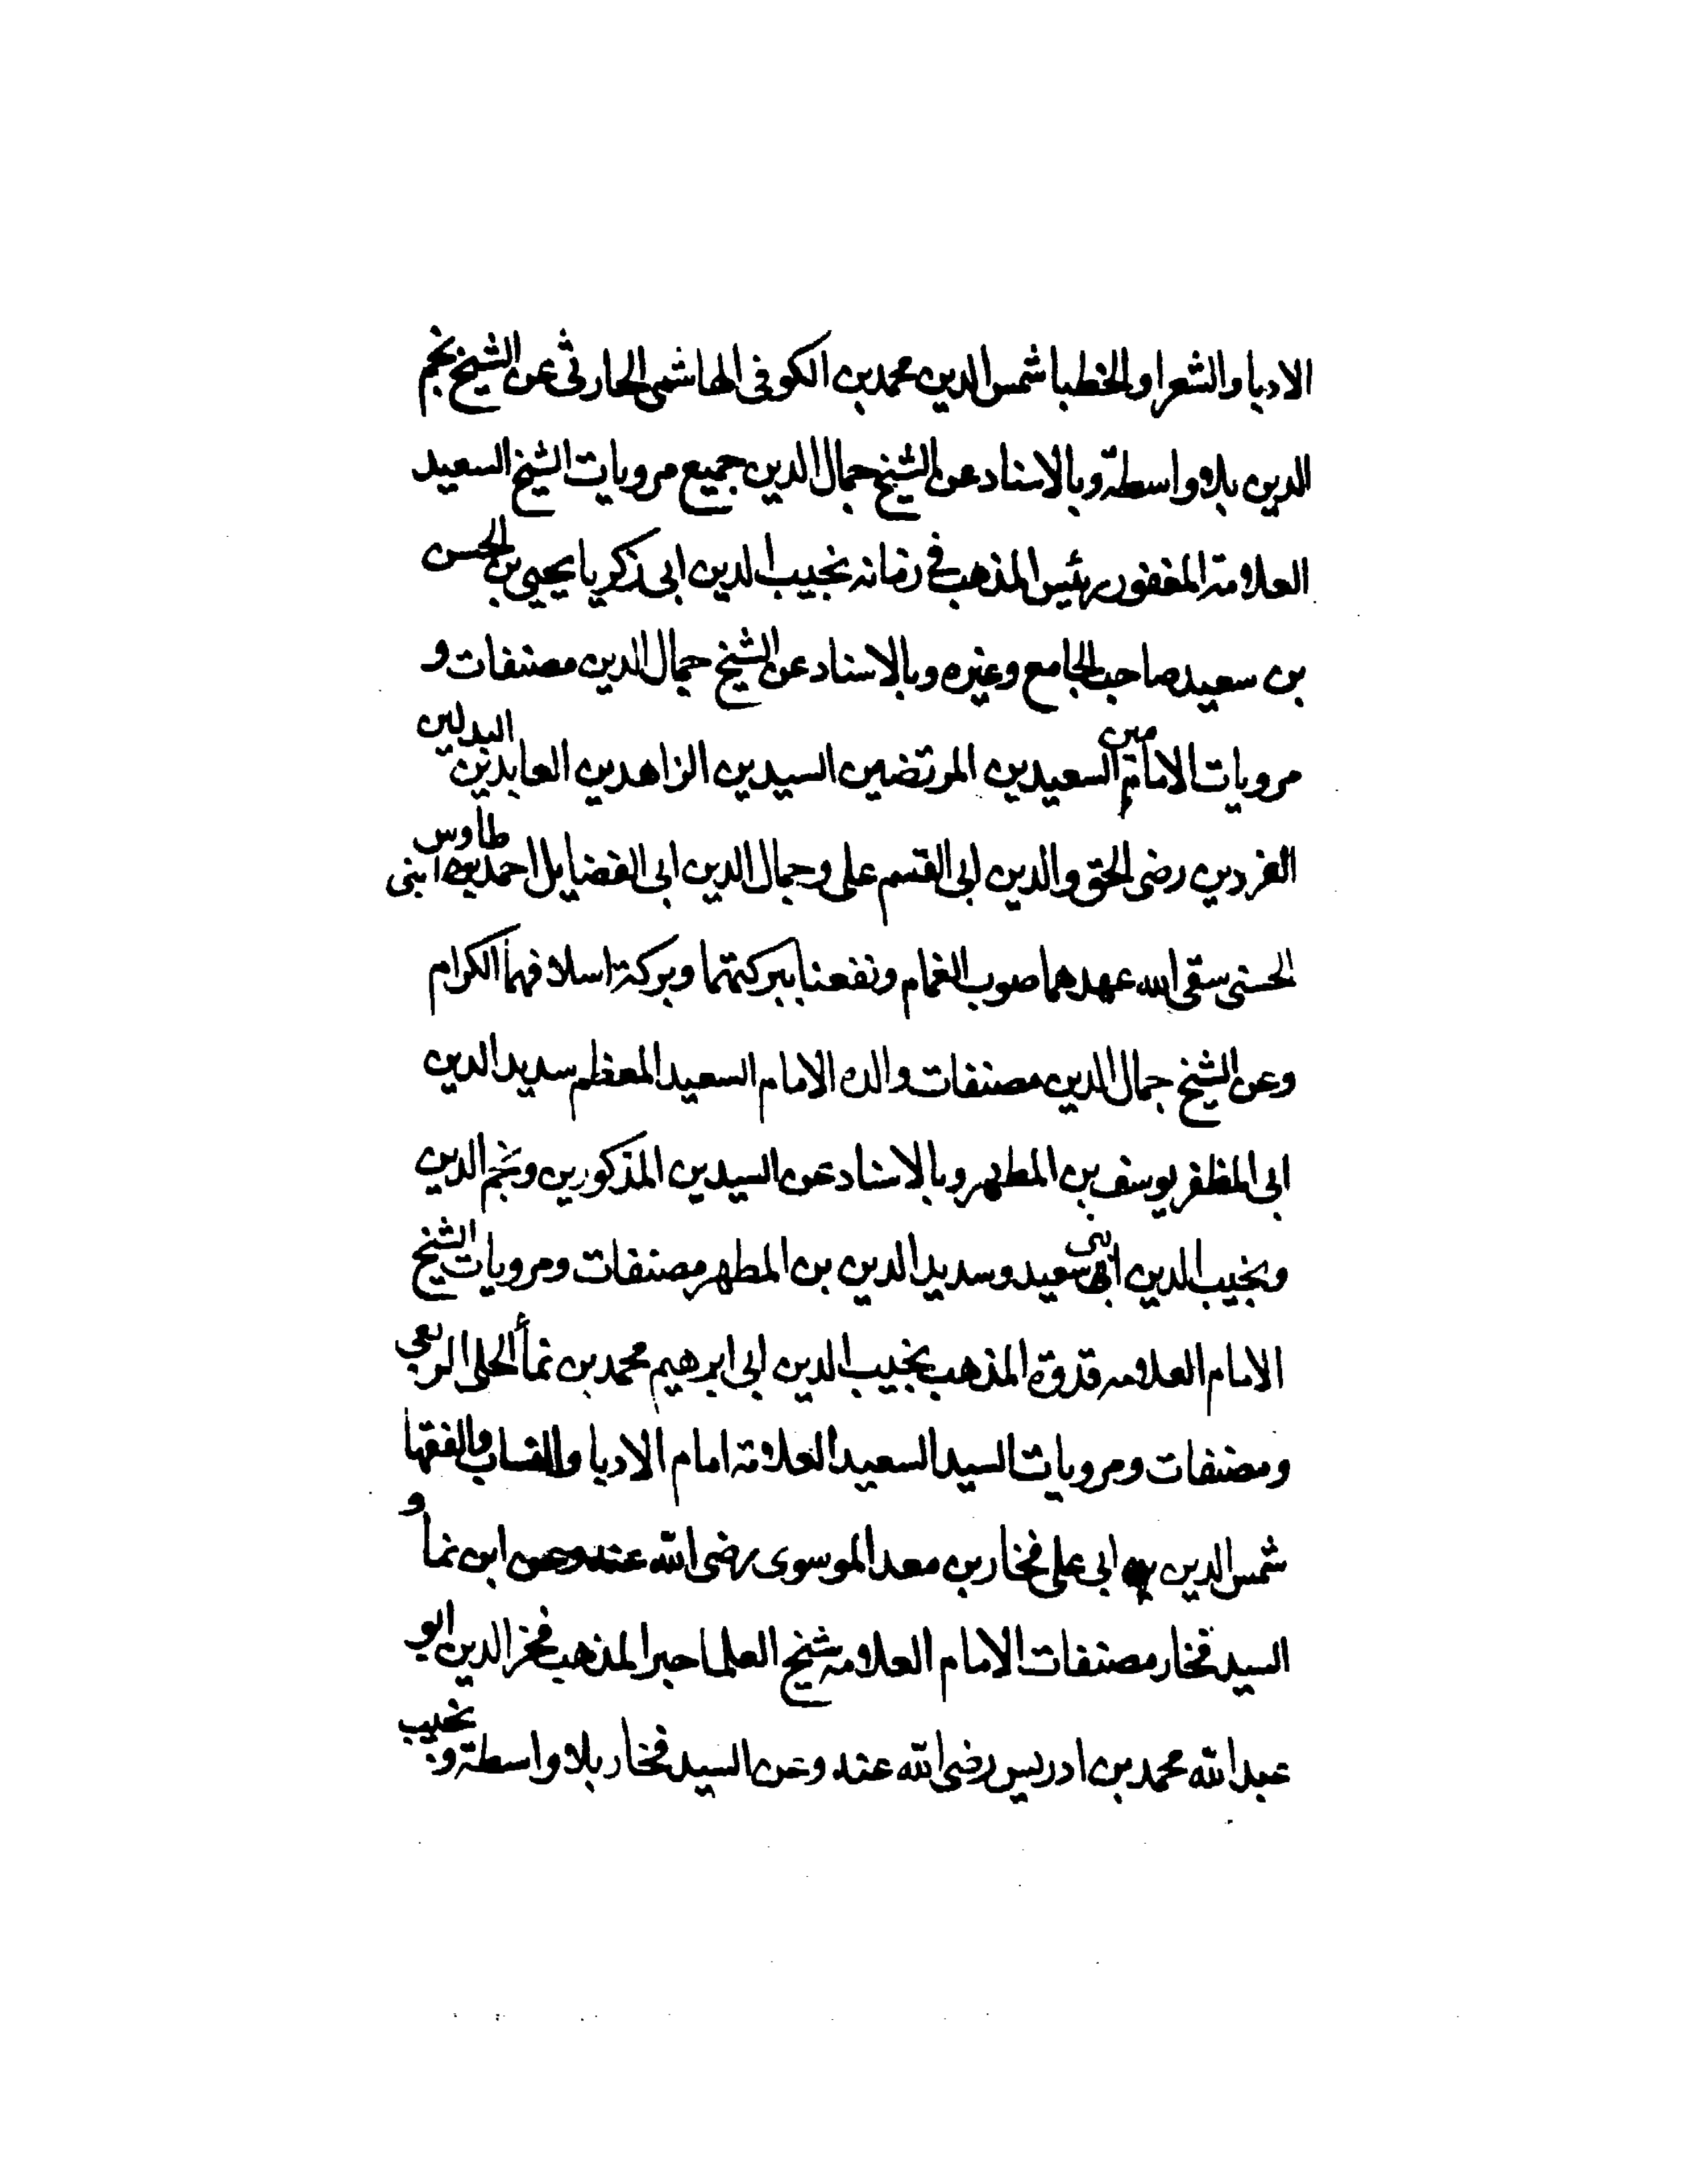 الادبا والشعرا والخطبا شمس الدين محمد بن الكوفى الهاشمى الحارثى عن الشيخ نجم
الدين بلا واسطة وبالاسناد عن الشيخ جمال الدين جميع مرويات الشيخ السعيد
العلامة المغفور رئيس المذهب في زمانه نجيب الدين ابى زكريا يحيى بن الحسن
بن سعيد صاحب الجامع وغيره وبالاسناد عن الشيخ جمال الدين مصنفات و
مرويات الامامين السعيدين المرتضين السيدين الزاهدين العابدين البدلين
الفردين رضى الحق والدين ابى القسم على وجمال الدين ابى الفضايل احمد ابنى طاوس
الحسنى سقى الله عهدهما صوب الغمام ونفعنا ببركتهما وبركة اسلافهما الكرام
وعن الشيخ جمال الدين مصنفات والده الامام السعيد المعظم سديد الدين
ابى المظفر يوسف بن المطهر وبالاسناد عن السيدين المذكورين ونجم الدين
ونجيب الدين ابنى سعيد وسديد الدين بن المطهر مصنفات ومرويات الشيخ
الامام العلامه قدوة المذهب نجيب الدين ابى ابرهيم محمد بن نما الحلى الربعي
ومصنفات ومرويات السيد السعيد العلامة امام الادبا والنساب والفقها
شمس الدين ابى على فخار بن معد الموسوى رضى الله عنه وعن ابن نما و
السيد فخار مصنفات الامام العلامه شيخ العلما حبر المذهب فخر الدين ابو
عبد الله محمد بن ادريس رضى الله عنه وعن السيد فخار بلا واسطة ونجيب